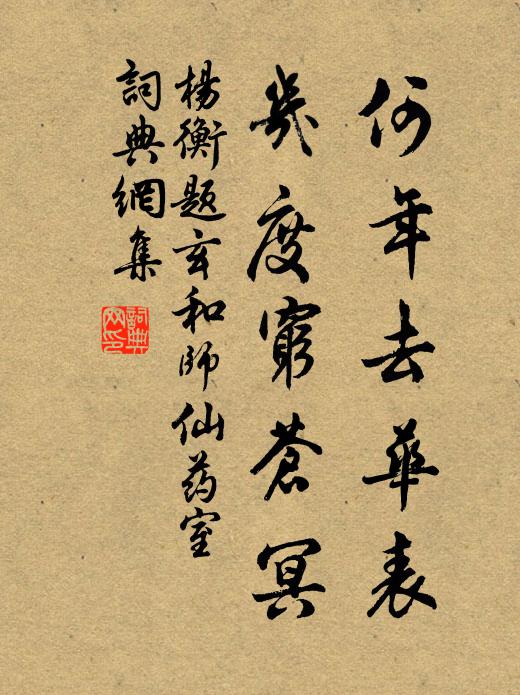 何年去華表
幾度窮蒼冥
楊衡题玄和師仙药室
詞典網集
詞典網印